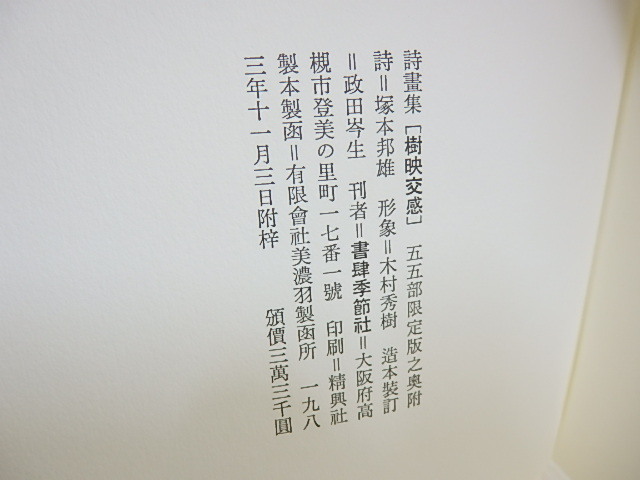 詩畫集［樹映交感］五五部限定版之奥附
詩＝塚本邦雄　形象＝木村秀樹　造本装訂
＝政田岑生　刊者＝書肆季節社＝大阪府高
槻市登美の里町一七番一號　印刷＝精興社
製本製函＝有限會社美濃羽製函所　一九八
三年十一月三日附梓　　頒價三萬三千圓